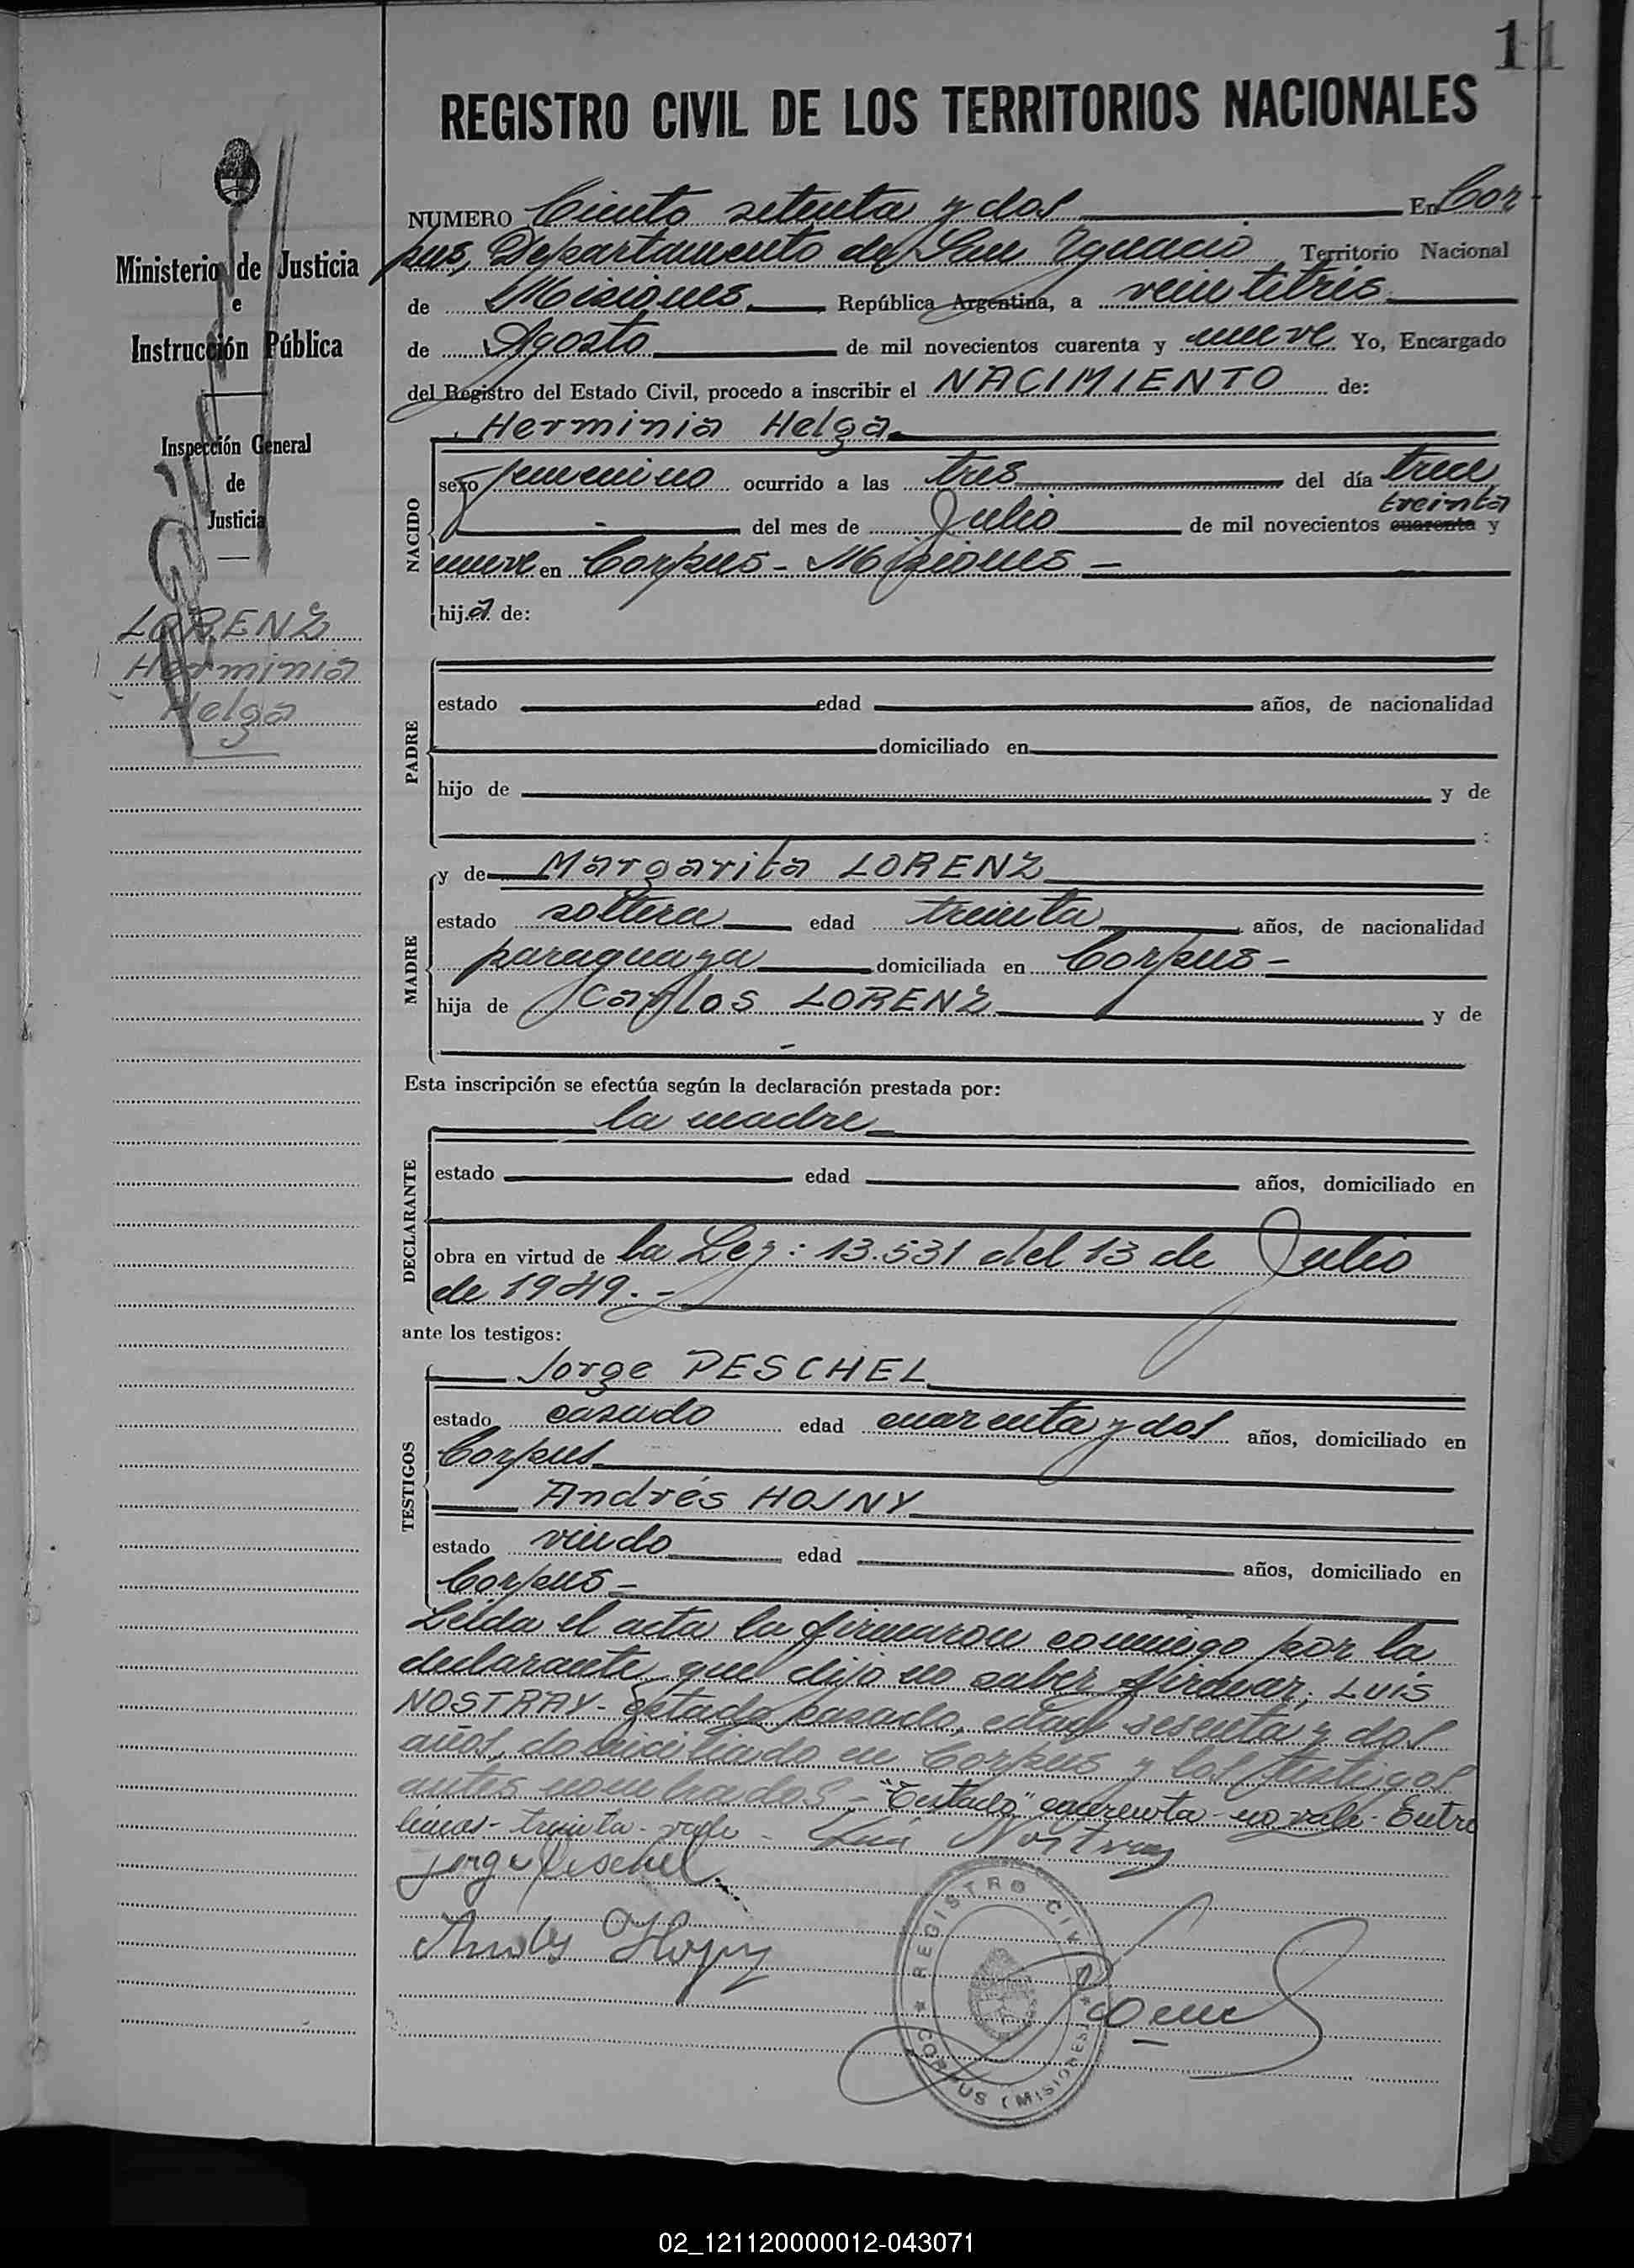 11
REGISTRO CIVIL DE LOS TERRITORIOS NACIONALES
Ministerio de Justicia
e
Instrucción Pública
Inspección General
de
Justicia
LORENZ
Herminia
Helga
NUMERO Ciento setenta y dos En Cor-
pus, Departamento de San Ygnacio Territorio Nacional
de Misiones República Argentina, a veintitrés
de Agosto de mil novecientos cuarenta y nueve Yo, Encargado
del Registro del Estado Civil, procedo a inscribir el NACIMIENTO de:
Herminia Helga
NACIDO
sexo femenino ocurrido a las tres del día trece
treinta
del mes de Julio de mil novecientos cuarenta y
nueve en Corpus - Misiones -
hija de:
PADRE
estado edad años, de nacionalidad
domiciliado en
hijo de y de
:
MADRE
y de Margarita LORENZ
estado soltera edad treinta años, de nacionalidad
paraguaya domiciliada en Corpus -
hija de Carlos LORENZ y de
-
Esta inscripción se efectúa según la declaración prestada por:
DECLARANTE
la madre
estado edad años, domiciliado en
obra en virtud de la Ley: 13.531 del 13 de Julio
de 1949. -
ante los testigos:
TESTIGOS
Jorge PESCHEL
estado casado edad cuarenta y dos años, domiciliado en
Corpus
Andrés HOJNY
estado viudo edad años, domiciliado en
Corpus -
Leída el acta la firmaron conmigo por la
declarante que dijo no saber firmar, LUIS
NOSTRAY - Estado casado, edad sesenta y dos
años, domiciliado en Corpus y los testigos
antes nombrados - "Testado" cuarenta - no vale - Entre
líneas - treinta - vale - Luis Nostray
Jorge Peschel
Andrés Hojny
REGISTRO CIVIL
CORPUS (MISIONES)
02_121120000012-043071